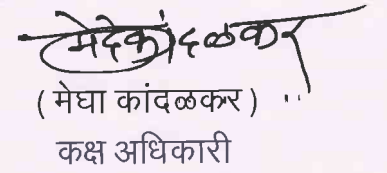 मेदेकांदळकर
( मेघा कांदळकर )
कक्ष अधिकारी